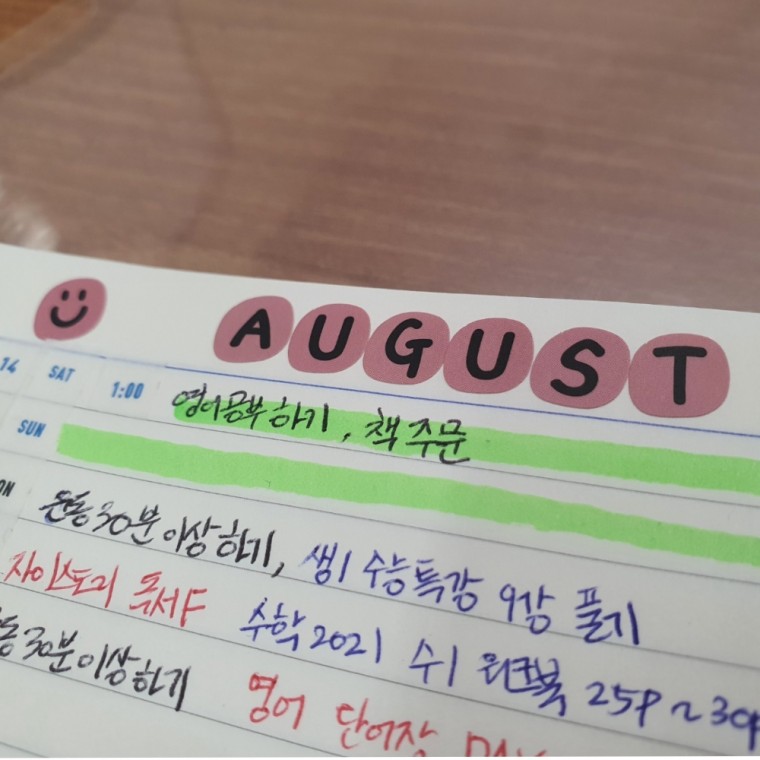 AUGUST
14 SAT 1:00 영어공부하기, 책 주문
SUN
운동 30분 이상 하기, 생1 수능특강 9강 풀기
자이스토리 독서F 수학 2021 수1 워크북 25P~30P
30분 이상 하기 영어 단어장 DAY